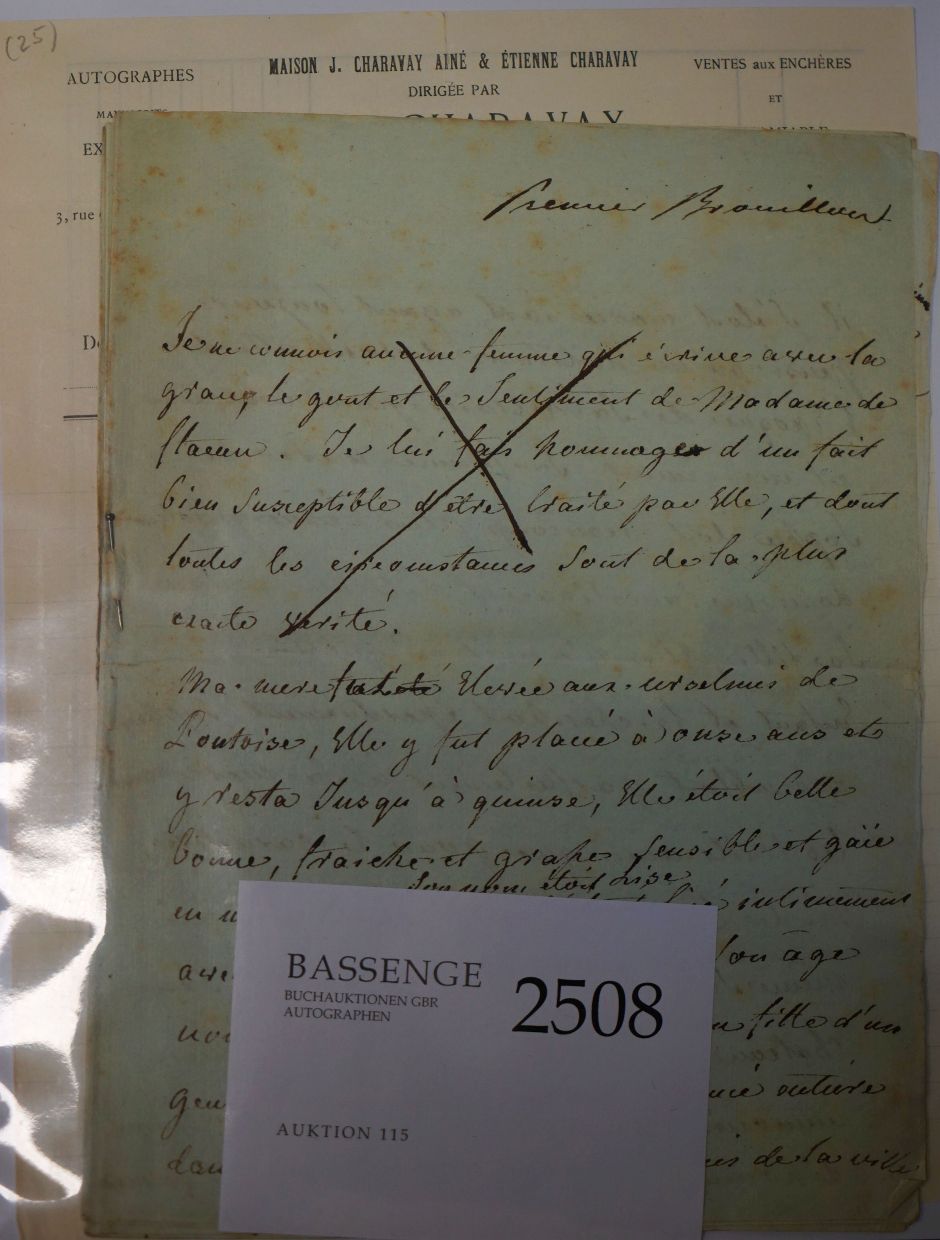 (25)
MAISON J. CHARAVAY AINÉ & ÉTIENNE CHARAVAY
AUTOGRAPHES
VENTES aux ENCHÈRES
DIRIGÉE PAR
ET
CHARAVAY
EX
3, rue
Premier Brouillon
Je ne connois aucune femme qui écrive avec la
grace, le gout et le Sentiment de Madame de
. Je lui fais hommage d'un fait
bien Susceptible d'être traité par Elle, et dont
toutes les circonstances Sont de la plus
exacte verité.
Ma mere Elevée aux urselines de
Pontoise, Elle y fut placée à onse ans et
y resta Jusqu'à quinse, Elle étoit belle
bonne, fraiche et grasse Sensible et gaïe
Son nom étoit Lise
en intimement
ave Son age
fille d'un
gen entière
de la ville
BASSENGE
BUCHAUKTIONEN GBR
AUTOGRAPHEN
2508
AUKTION 115